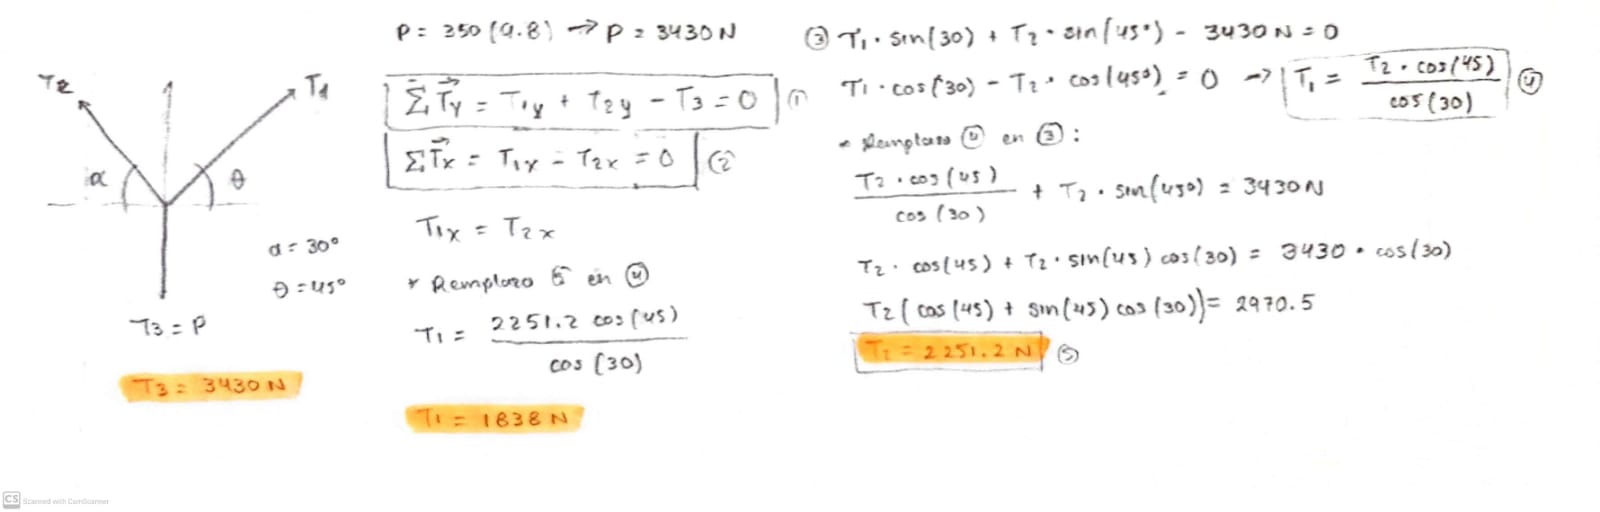 P = 350 (9.8) → P = 3430 N
T2
T1
α
θ
α = 30°
θ = 45°
T3 = P
T3 = 3430 N
ΣTy = T1y + T2y - T3 = 0 ①
ΣTx = T1x - T2x = 0 ②
T1x = T2x
* Remplazo 5 en ④
T1 = 2251.2 cos(45)
cos (30)
T1 = 1838 N
③ T1 · sin(30) + T2 · sin(45°) - 3430 N = 0
T1 · cos(30) - T2 · cos(45°) = 0 → T1 = T2 · cos(45)
cos(30) ④
* Remplazo ④ en ③ :
T2 · cos(45)
cos (30) + T2 · sin(45°) = 3430 N
T2 · cos(45) + T2 · sin(45) cos(30) = 3430 · cos(30)
T2 ( cos(45) + sin(45) cos (30)) = 2970.5
T2 = 2251.2 N ⑤
CS Scanned with CamScanner